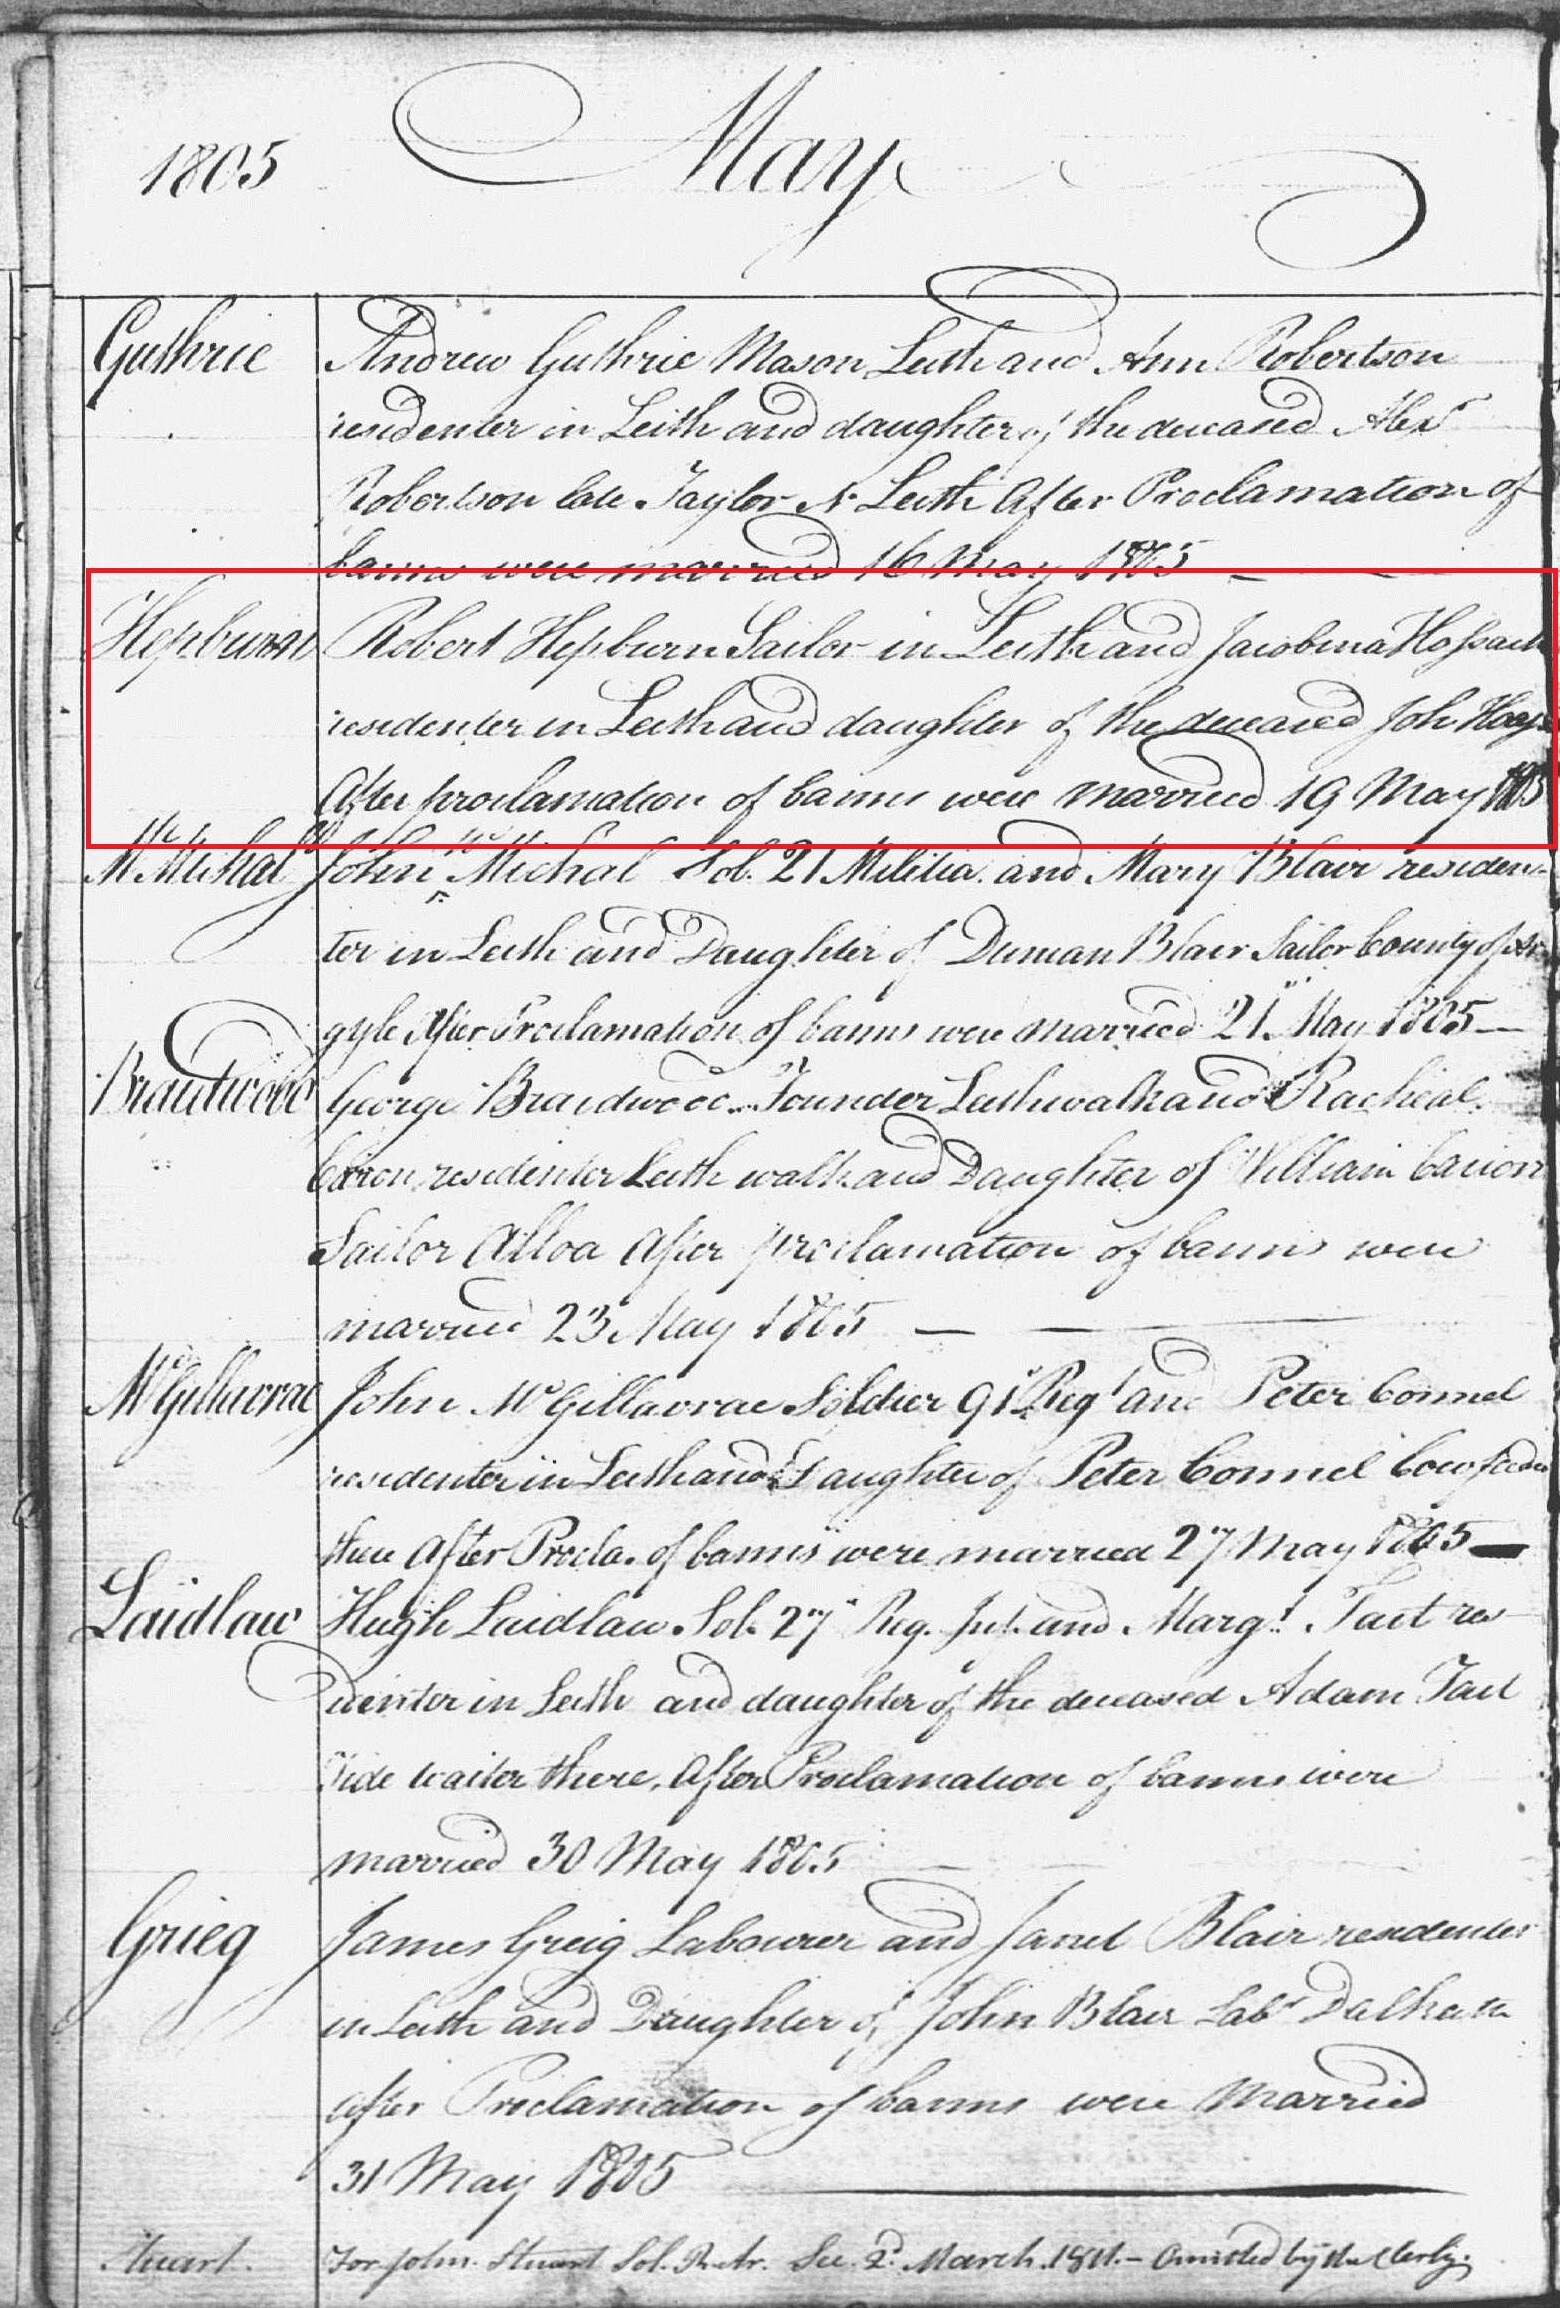 1805 May
Guthrie Andrew Guthrie Mason Leith and Ann Robertson
residenter in Leith and daughter of the deceased Alexr
Robertson late Taylor N Leith After Proclamation of
banns were married 16 May 1805
Hepburn Robert Hepburn Sailor in Leith and Jacobina Hossack
residenter in Leith and daughter of the deceased Joh
After proclamation of banns were married 19 May 1805
McMichal John McMichal Sol. 21 Militia and Mary Blair residen-
ter in Leith and Daughter of Duncan Blair Sailor County of Ar
gyle After Proclamation of banns were married 21 May 1805
Braidwood George Braidwood Founder Leithwalk and Racheal
residenter Leith walk and Daughter of William Carion
Sailor Alloa After proclamation of banns were
married 23 May 1805
McGillavrae John McGillavrae Soldier 91 Regt and Peter Connel
residenter in Leith and Daughter of Peter Connel Cowfeeder
there After Procla. of banns were married 27 May 1805
Laidlaw Hugh Laidlaw Sol. 27 Reg. Inf. and Margt. Tait res
identer in Leith and daughter of the deceased Adam Tait
Tide waiter there, After Proclamation of banns were
married 30 May 1805
Grieg James Greig Labourer and Janet Blair residenter
in Leith and Daughter of John Blair Labr Dalkeith
after Proclamation of banns were Married
31 May 1805
Stuart. For John Stuart Sol. R. Ar. See 2d March 1811 - Omitted by the Clerk